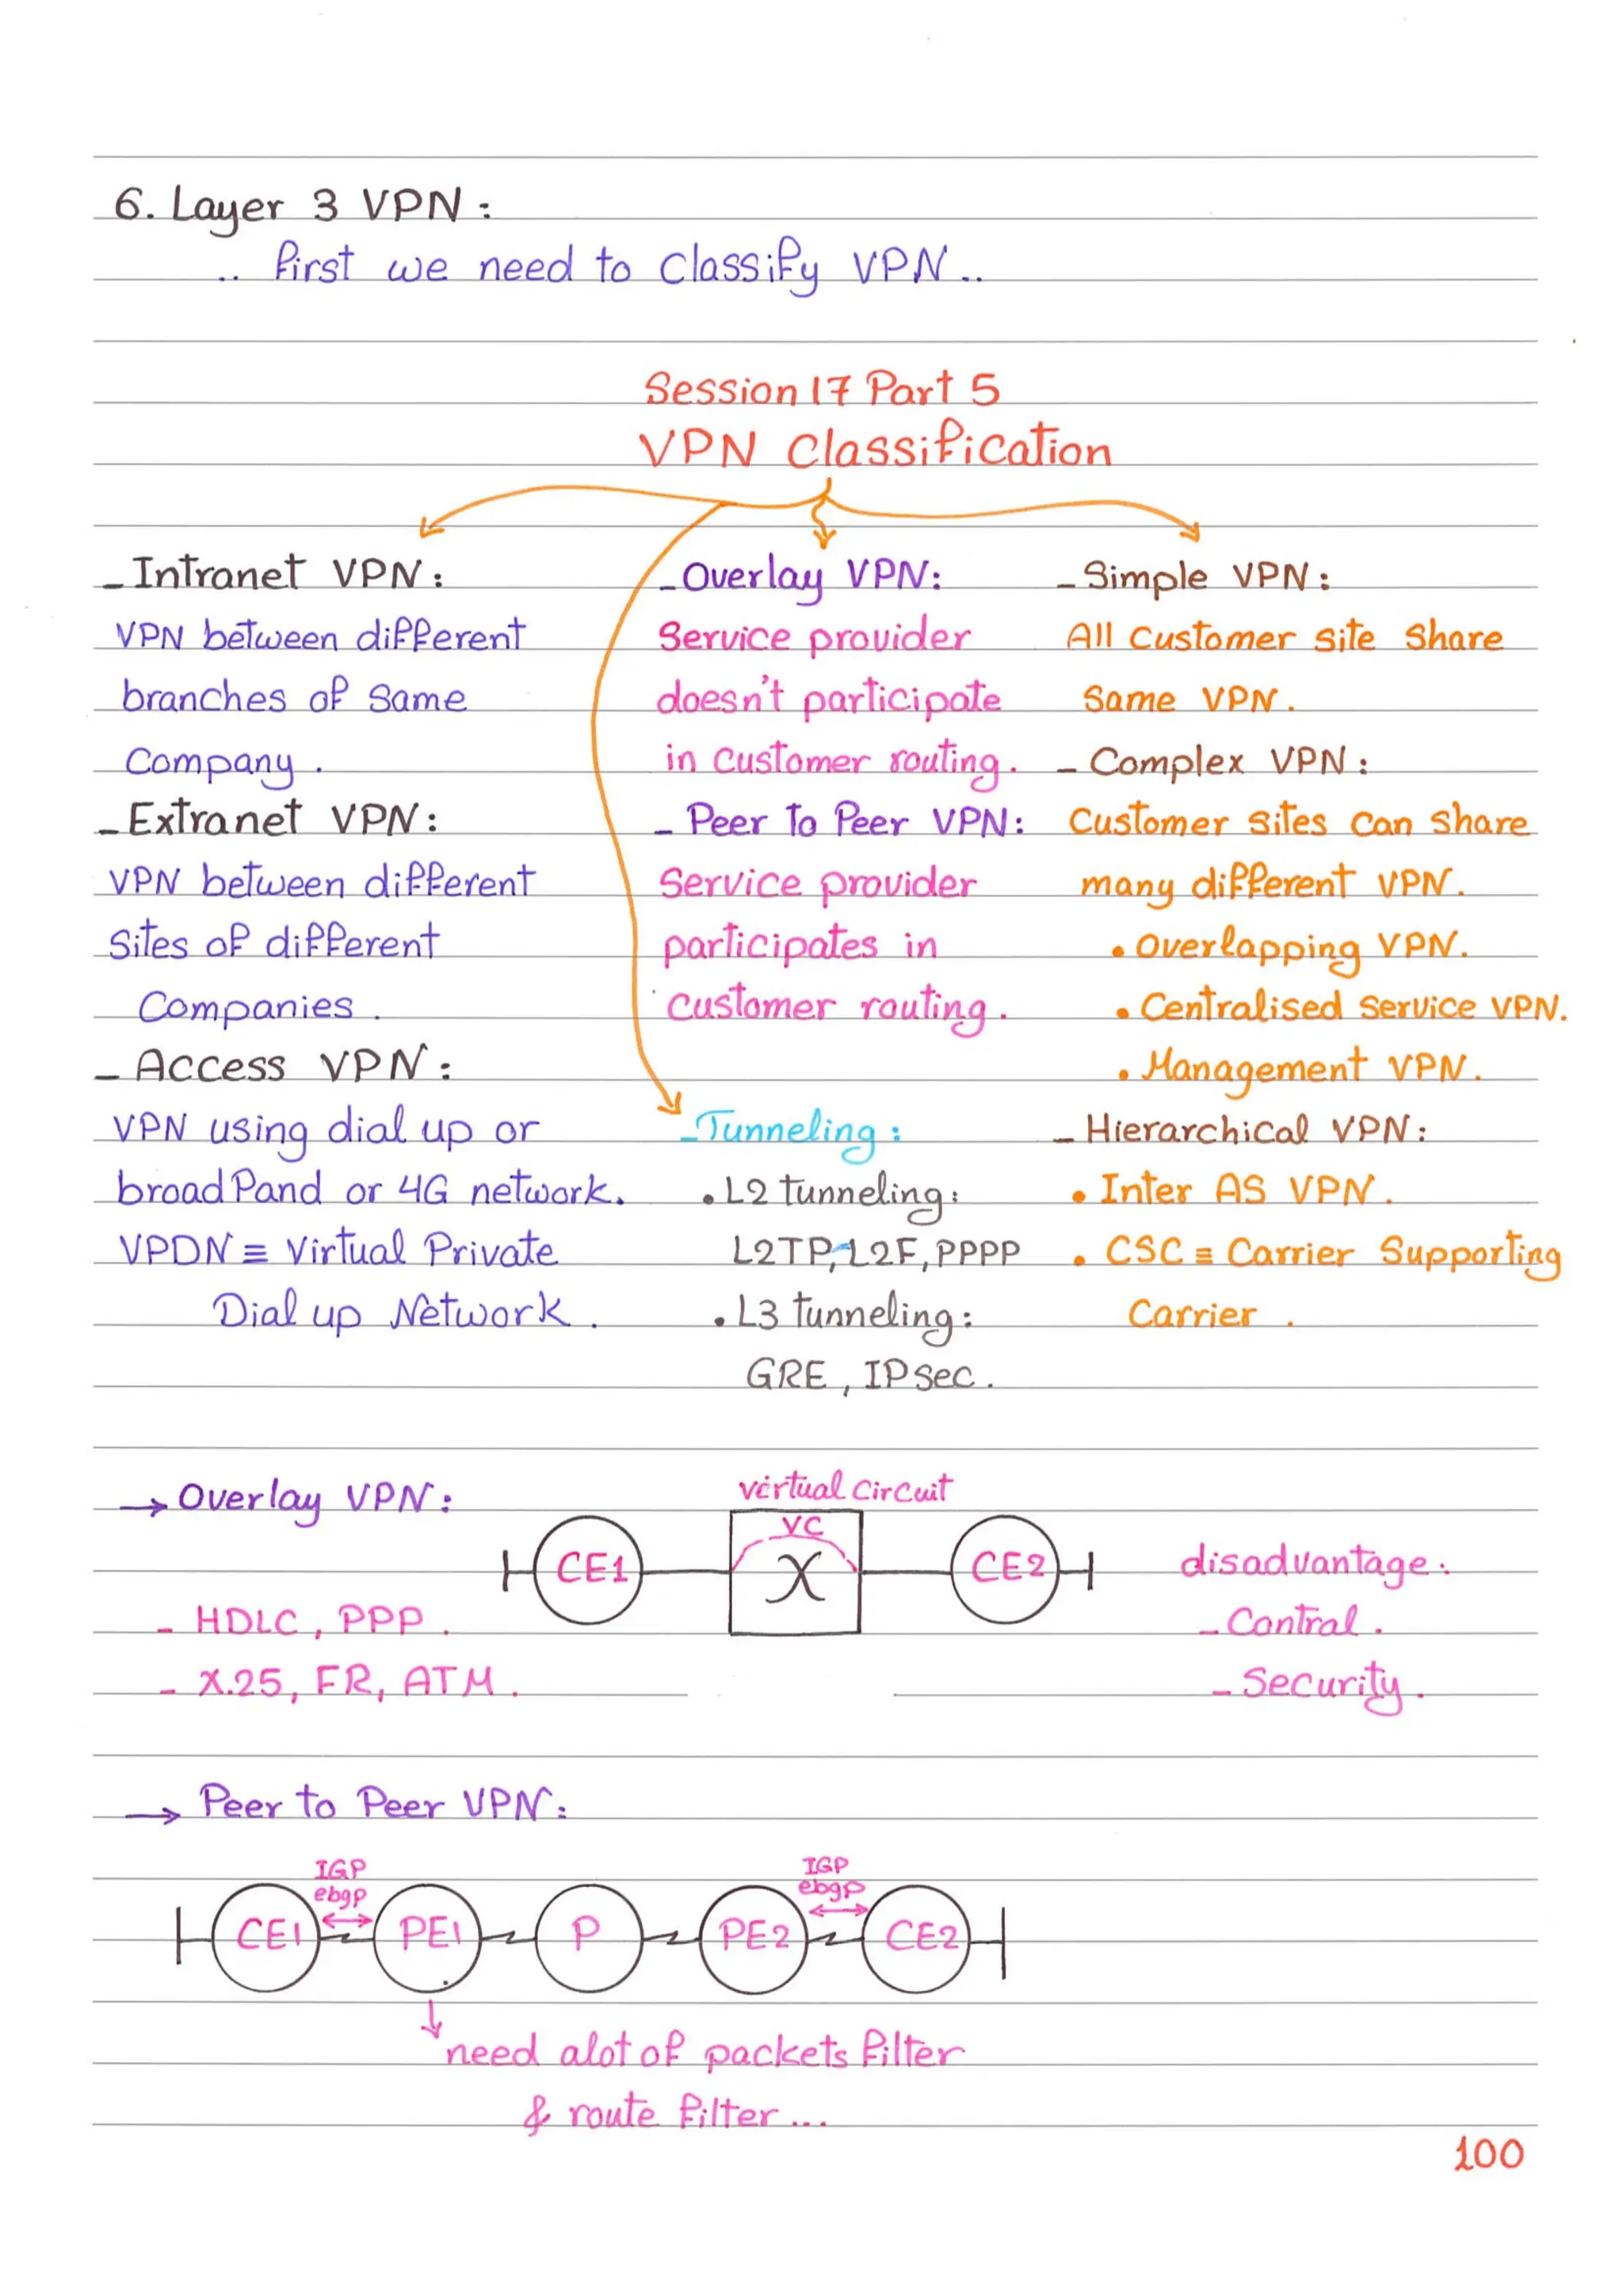 6. Layer 3 VPN :
.. first we need to classify VPN ..
Session 17 Part 5
VPN Classification
- Intranet VPN :
VPN between different
branches of Same
Company .
- Extranet VPN :
VPN between different
Sites of different
Companies .
- Access VPN :
VPN using dial up or
broadPand or 4G network.
VPDN ≡ Virtual Private
Dial up Network .
- Overlay VPN:
Service provider
doesn't participate
in customer routing .
- Peer To Peer VPN:
Service provider
participates in
Customer routing .
- Tunneling :
• L2 tunneling :
L2TP, L2F, PPPP
• L3 tunneling :
GRE , IPsec .
- Simple VPN :
All Customer site share
Same VPN .
- Complex VPN :
Customer sites can share
many different VPN.
• Overlapping VPN.
• Centralised Service VPN.
• Management VPN .
- Hierarchical VPN :
• Inter AS VPN .
• CSC ≡ Carrier Supporting
Carrier .
→ Overlay VPN :
virtual circuit
VC
CE1
X
CE2
- HDLC , PPP .
- X.25, FR, ATM .
disadvantage :
- Control .
- Security .
→ Peer to Peer VPN :
IGP
ebgp
IGP
ebgp
CE1 PE1 P PE2 CE2
need alot of packets filter
& route filter ...
100